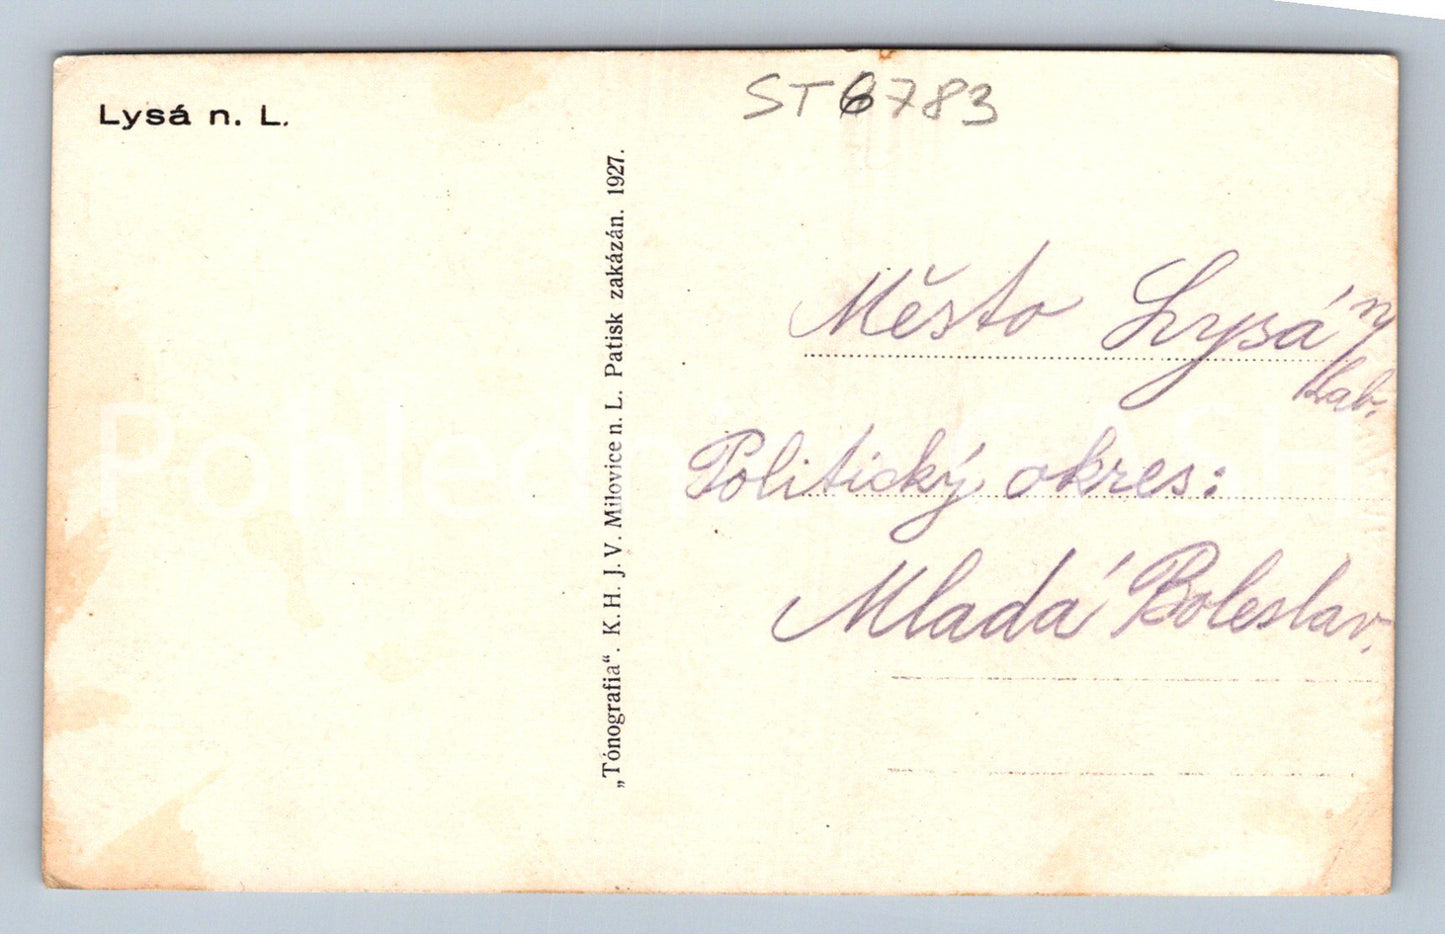 Lysá n. L.
ST6783
„Tónografia“. K. H. J. V. Milovice n. L. Patisk zakázán. 1927.
Město Lysá n
Lab.
Politický okres:
Mladá Boleslav.